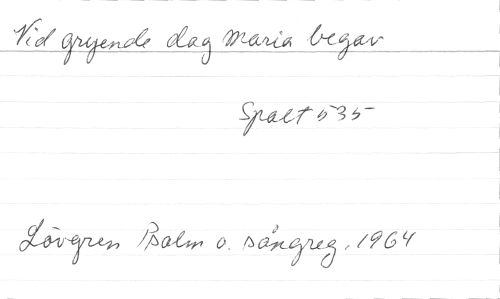 Vid gryende dag Maria begav
Spalt 535
Lövgren Psalm o. sångreg. 1964